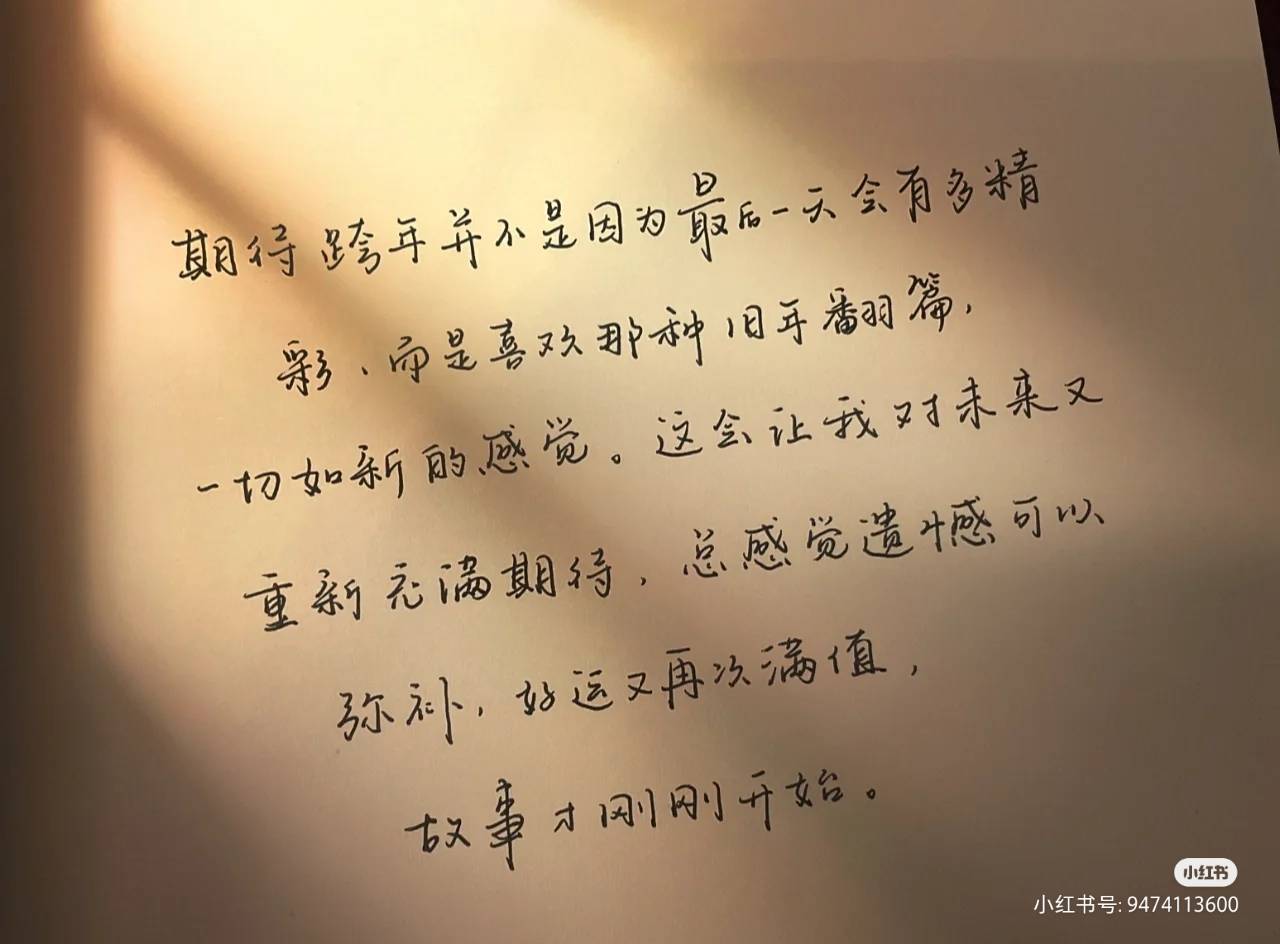 期待跨年并不是因为最后一天会有多精
彩、而是喜欢那种旧年翻篇，
一切如新的感觉。这会让我对未来又
重新充满期待，总感觉遗憾可以
弥补，好运又再次满值，
故事才刚刚开始。
小红书
小红书号: 9474113600